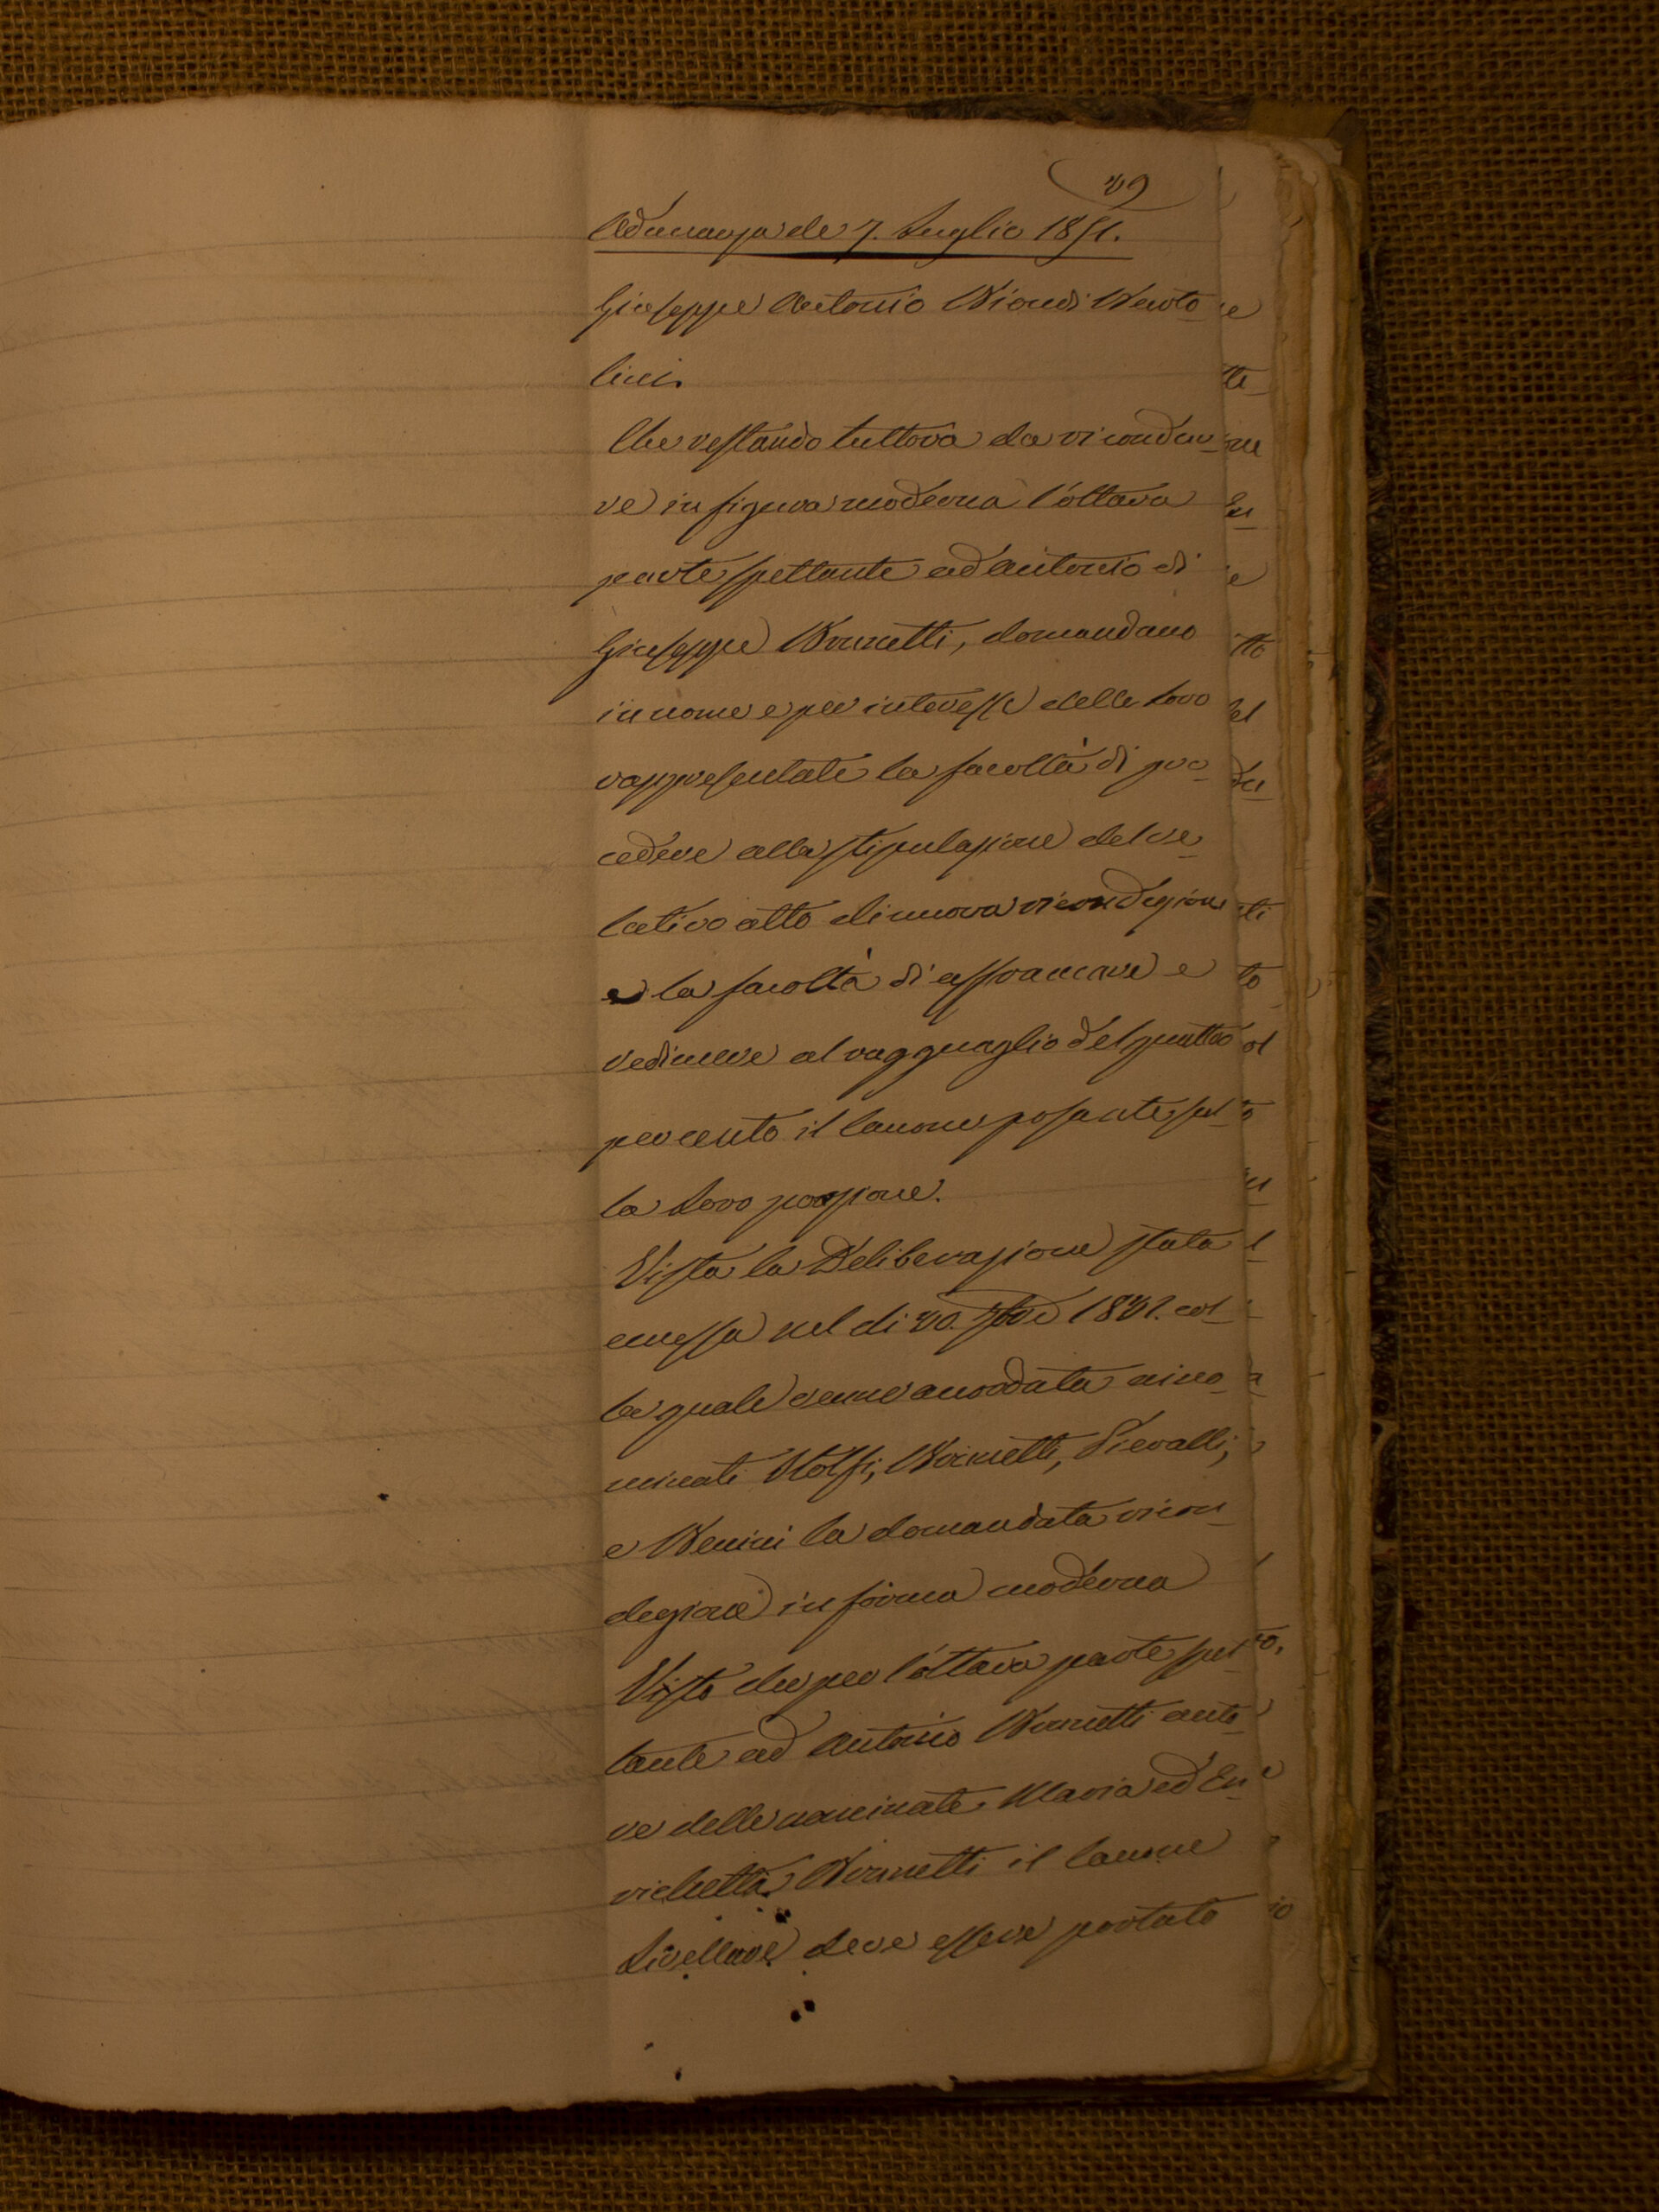 39
Adunanza de 7. Luglio 1851.
Giuseppe Antonio Biondi Berto-
lini.
Che restando tuttora da ricondur-
re in figura moderna l'ottava
parte spettante ad Antonio di
Giuseppe Bonnetti, domandano
in nome e per interesse delle Loro
rappresentate la facoltà di pro-
cedere alla stipulazione del re-
lativo atto di nuova riconduzione
e la facoltà di affrancare e
redimere al ragguaglio del quattro
per cento il Canone posante sul-
la Loro porzione.
Vista la Deliberazione stata
emessa nel di 30. 7bre 1831. col-
la quale venne accordata ai no-
minati Stolfi, Bonnetti, Pieralli,
e Benini la domandata ricon-
duzione in forma moderna
Visto che per l'ottava parte spet-
tante ad Antonio Bonnetti auto-
re delle nominate Maria ed En-
richetta Bonnetti il Canone
Livellare deve essere portato